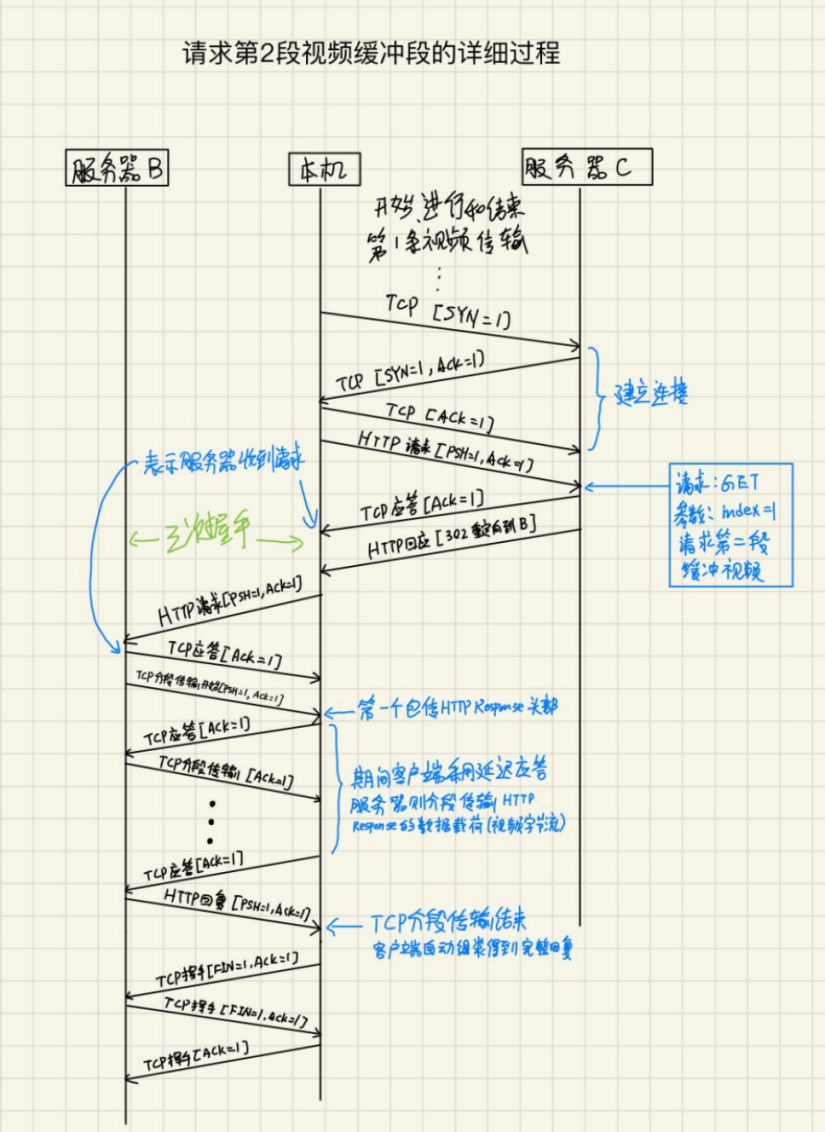 请求第2段视频缓冲段的详细过程
服务器B
本机
服务器C
开始、进行和结束
第1条视频传输
TCP [SYN=1]
TCP [SYN=1, Ack=1]
TCP [ACK=1]
建立连接
HTTP 请求 [PSH=1, Ack=1]
表示服务器收到请求
TCP应答 [Ack=1]
请求:GET
参数: index=1
请求第二段
缓冲视频
三次握手
HTTP回应 [302重定向到B]
HTTP请求[PSH=1, Ack=1]
TCP应答[Ack=1]
TCP分段传输开始[PSH=1, Ack=1]
第一个包传HTTP Response头部
TCP应答[Ack=1]
TCP分段传输 [Ack=1]
期间客户端采用延迟应答
服务器则分段传输HTTP
Response的数据载荷(视频字节流)
TCP应答[Ack=1]
HTTP回复 [PSH=1, Ack=1]
TCP分段传输结束
客户端自动组装得到完整回复
TCP挥手[FIN=1, Ack=1]
TCP挥手 [FIN=1, Ack=1]
TCP挥手[Ack=1]